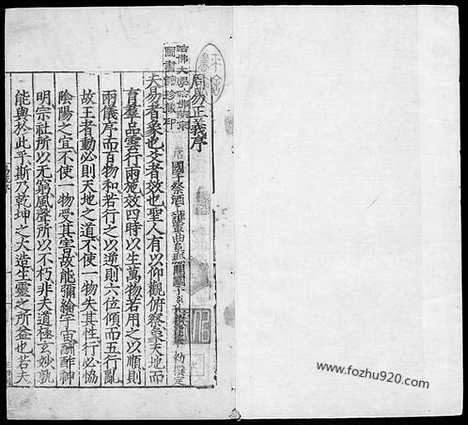 周易正義序
國子祭酒上護軍曲阜縣開國子
夫易者象也爻者效也聖人有以仰觀俯察象天地而
育羣品雲行雨施效四時以生萬物若用之以順則
兩儀序而百物和若行之以逆則六位傾而五行亂
故王者動必則天地之道不使一物失其性行必協
陰陽之宜不使一物受其害故能彌綸宇宙酬酢神
明宗社所以无窮風聲所以不朽非夫道極玄妙孰
能與於此乎斯乃乾坤之大造生靈之所益也若夫
哈佛大學
圖書館珍藏印
www.fozhu920.com